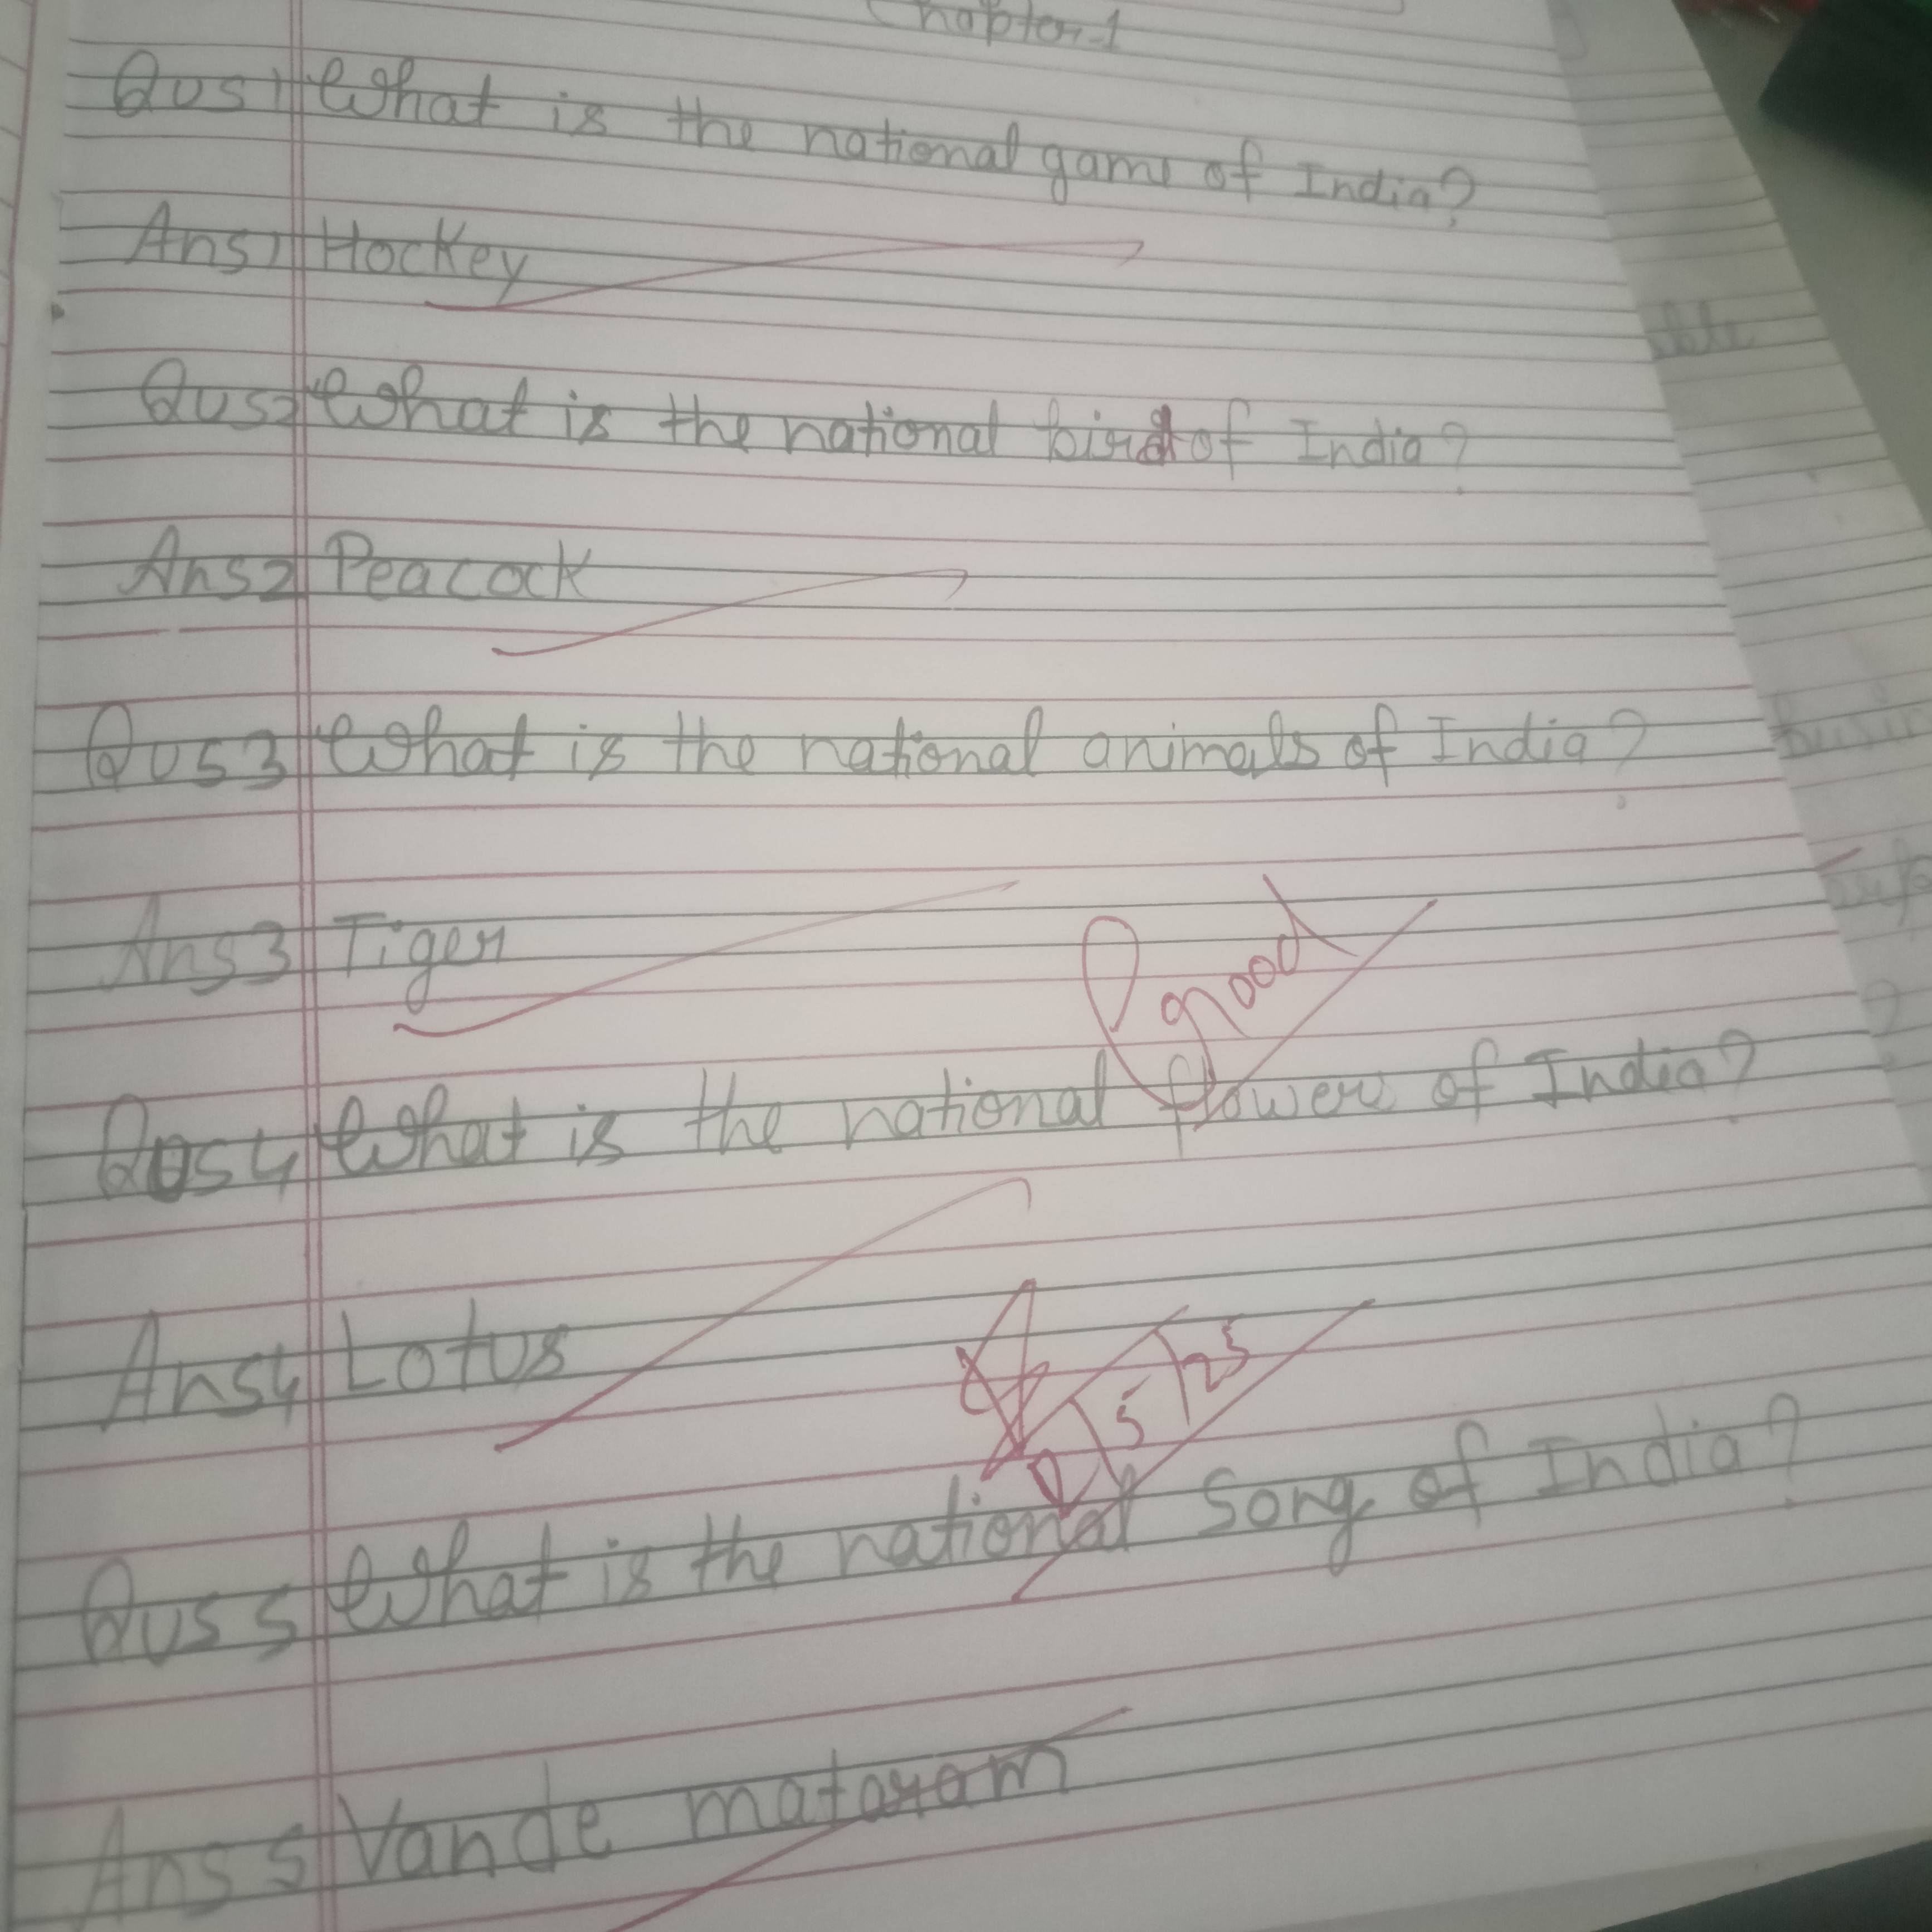 Chapter-1
Qus1 What is the national game of India?
Ans1 Hockey
Qus2 What is the national bird of India?
Ans2 Peacock
Qus3 What is the national animals of India?
Ans3 Tiger
good
Qus4 What is the national flower of India?
Ans4 Lotus
5/25
Qus5 What is the national Song of India?
Ans5 Vande mataram